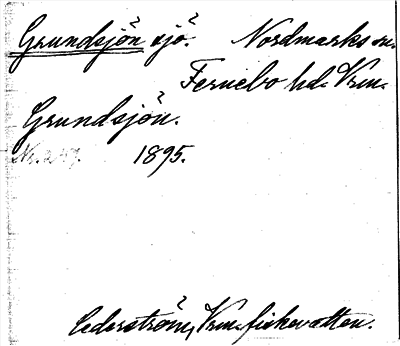 Grundsjön sjö. Nordmarks sn.
Fernebo hd. Vrm.
Grundsjön.
1895.
Cederström, Vrm. fiskevatten.